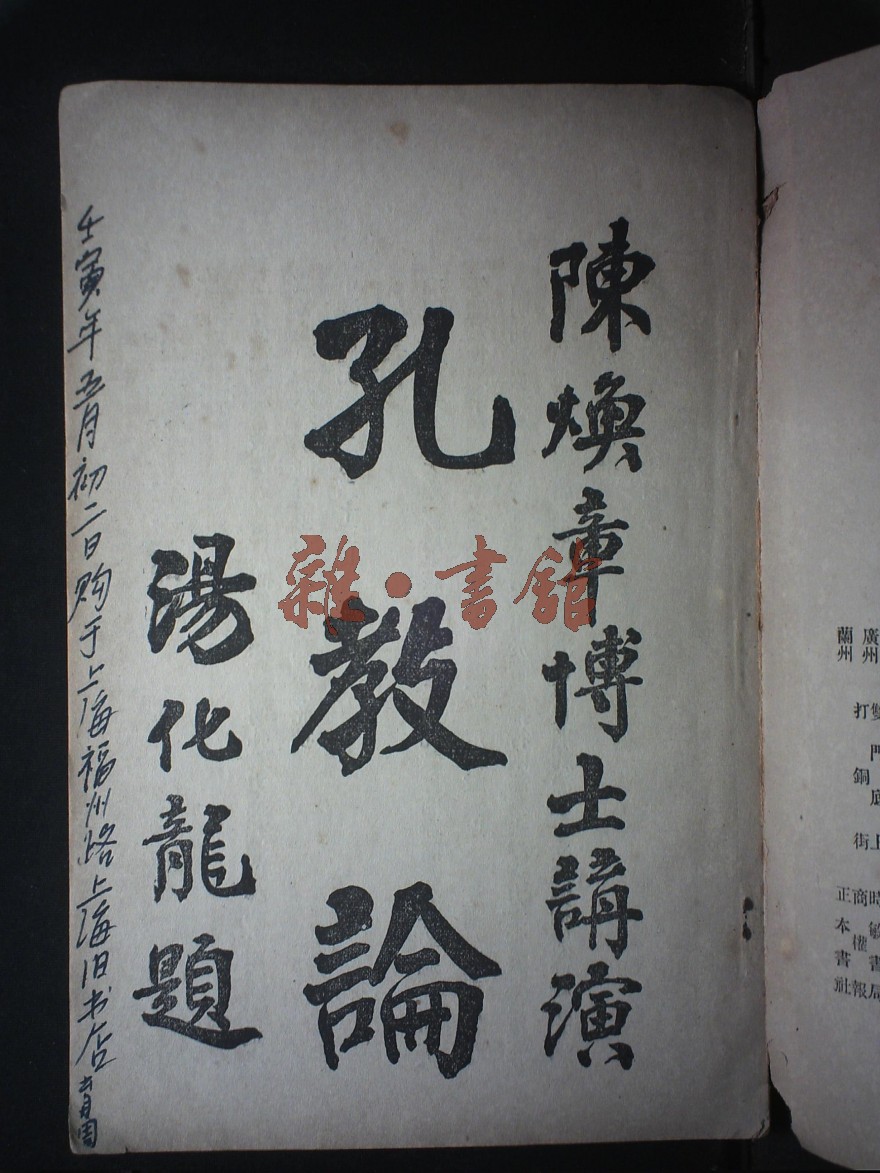 陳煥章博士講演
孔教論
湯化龍題
壬寅年五月初二日购于上海福州路上海旧书店
雜·書館
廣州
蘭州
打銅街
時敏書局
商權報
正本書社